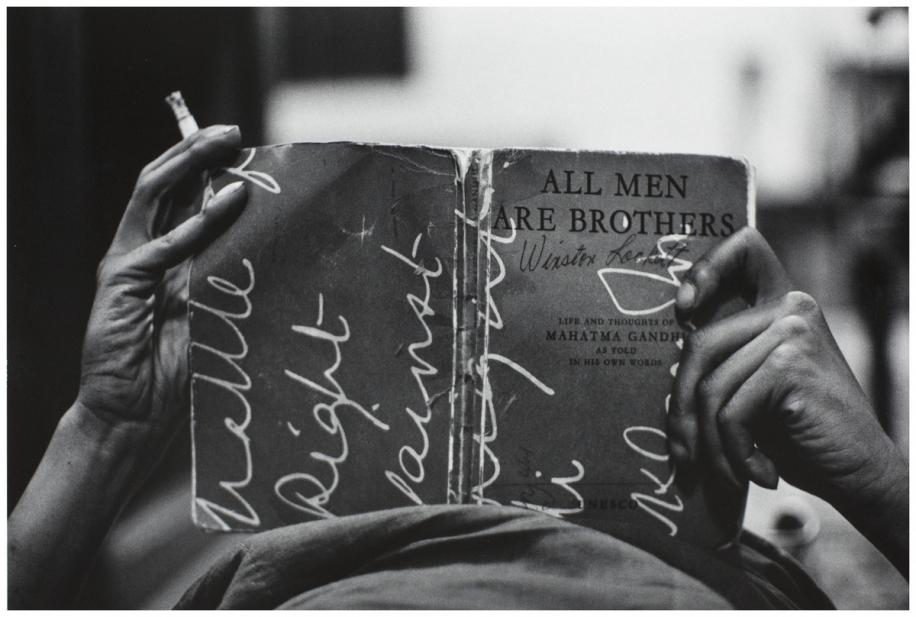 ALL MEN
ARE BROTHERS
Winston Lockett
LIFE AND THOUGHTS OF
MAHATMA GANDHI
AS TOLD
IN HIS OWN WORDS
UNESCO
battle
Right
against